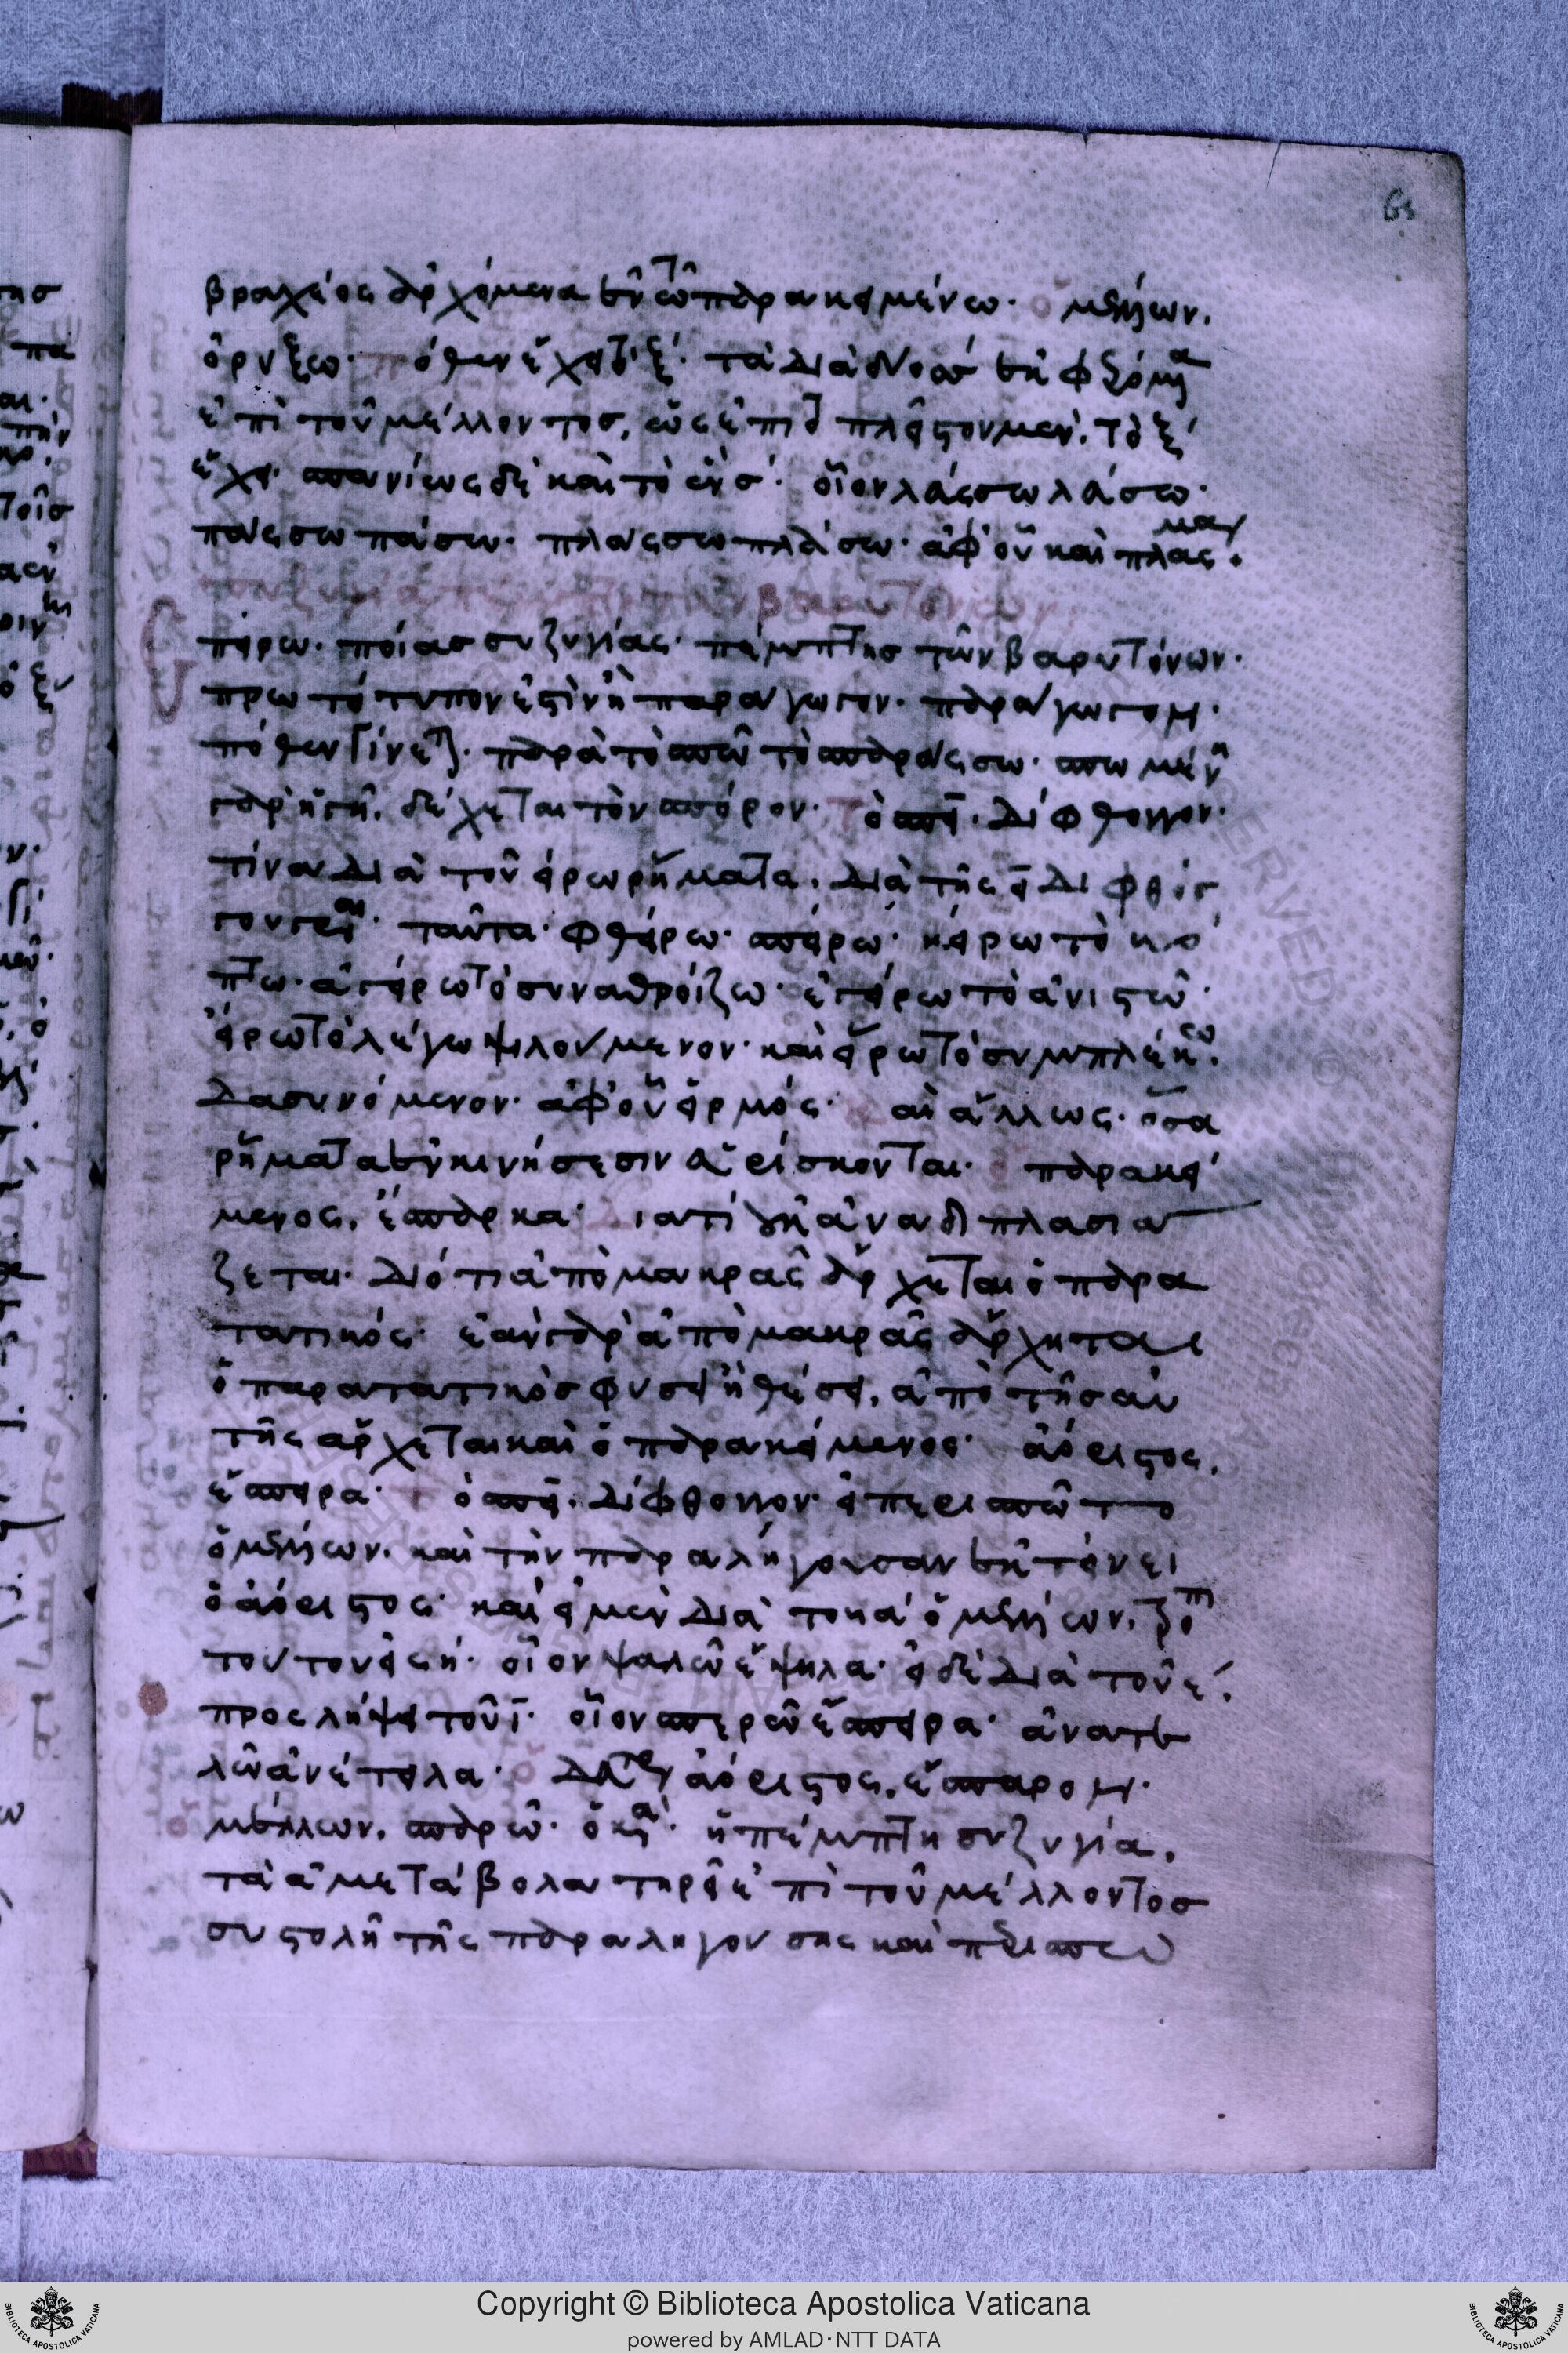 65
βραχέος ἀρχόμενα ἐν τῶ παρακειμένω· ὁ μέλλων,
ὀρύξω· πόθεν ἔχει τὸ ξ· τὰ διὰ δύο σσ ἐκφερόμενα
ἐπὶ τοῦ μέλλοντος, ὡς ἐπιτοπλεῖστον μὲν, τὸ ξ
ἔχει· σπανίως δὲ καὶ τὸ ἓν σ· οἷον λάσσω λάσω·
πάσσω πάσω· πλάσσω πλάσω· ἀφ' οὗ καὶ πλάσμα·
συζυγία πέμπτη τῶν βαρυτόνων·
πείρω· ποίας συζυγίας· πέμπτης τῶν βαρυτόνων·
πρωτότυπον ἐστὶν ἢ παράγωγον· παράγωγον·
πόθεν γίνεται· παρὰ τὸ σπῶ τὸ σπαράσσω· σπωμένη
γὰρ ἡ γῆ, δέχεται τὸν σπόρον· τὸ σπει, δίφθογγον·
τίνα διὰ τοῦ είρω ῥήματα, διὰ τῆς ει διφθόγ
γου γράφεται· ταῦτα· φθείρω· σπείρω· κείρω τὸ κό
πτω· ἀγείρω τὸ συναθροίζω· ἐγείρω τὸ ἀνιστῶ·
εἴρω τὸ λέγω ψιλούμενον· καὶ εἵρω τὸ συμπλέκω,
δασυνόμενον· ἀφ' οὗ εἱρμός· καὶ ἄλλως· ὅσα
ῥήματα ἐν κινήσεσιν εὑρίσκονται· ὁ παρακεί
μενος, ἔσπαρκα· διατί οὐκ ἀναδιπλασιά
ζεται· διότι ἀπὸ μακρᾶς ἄρχεται ὁ παρα
τατικός· ἐὰν γὰρ ἀπὸ μακρᾶς ἄρχηται
ὁ παρατατικὸς φύσει ἢ θέσει, ἀπὸ τῆς αὐ
τῆς ἄρχεται καὶ ὁ παρακείμενος· ἀόριστος,
ἔσπειρα· τὸ σπει, δίφθογγον· εἰ περισπῶτο
ὁ μέλλων· καὶ τὴν παραλήγουσαν ἐκτείνει
ὁ ἀόριστος· καὶ εἰ μὲν διὰ τοῦ α ὁ μέλλων, τρέπει
τοῦτο εἰς η· οἷον ψαλῶ ἔψηλα· εἰ δὲ διὰ τοῦ ε,
προσλήψει τοῦ ι· οἷον σπερῶ ἔσπειρα· ἀνατε
λῶ ἀνέτειλα· ὁ δεύτερος ἀόριστος, ἔσπαρον·
ὁ μέλλων, σπαρῶ· ὁ κανών· ἡ πέμπτη συζυγία,
τὰ ἀμετάβολα τηρεῖ ἐπὶ τοῦ μέλλοντος
συστολῆ τῆς παραληγούσης καὶ περισπω
Copyright © Biblioteca Apostolica Vaticana
powered by AMLAD·NTT DATA